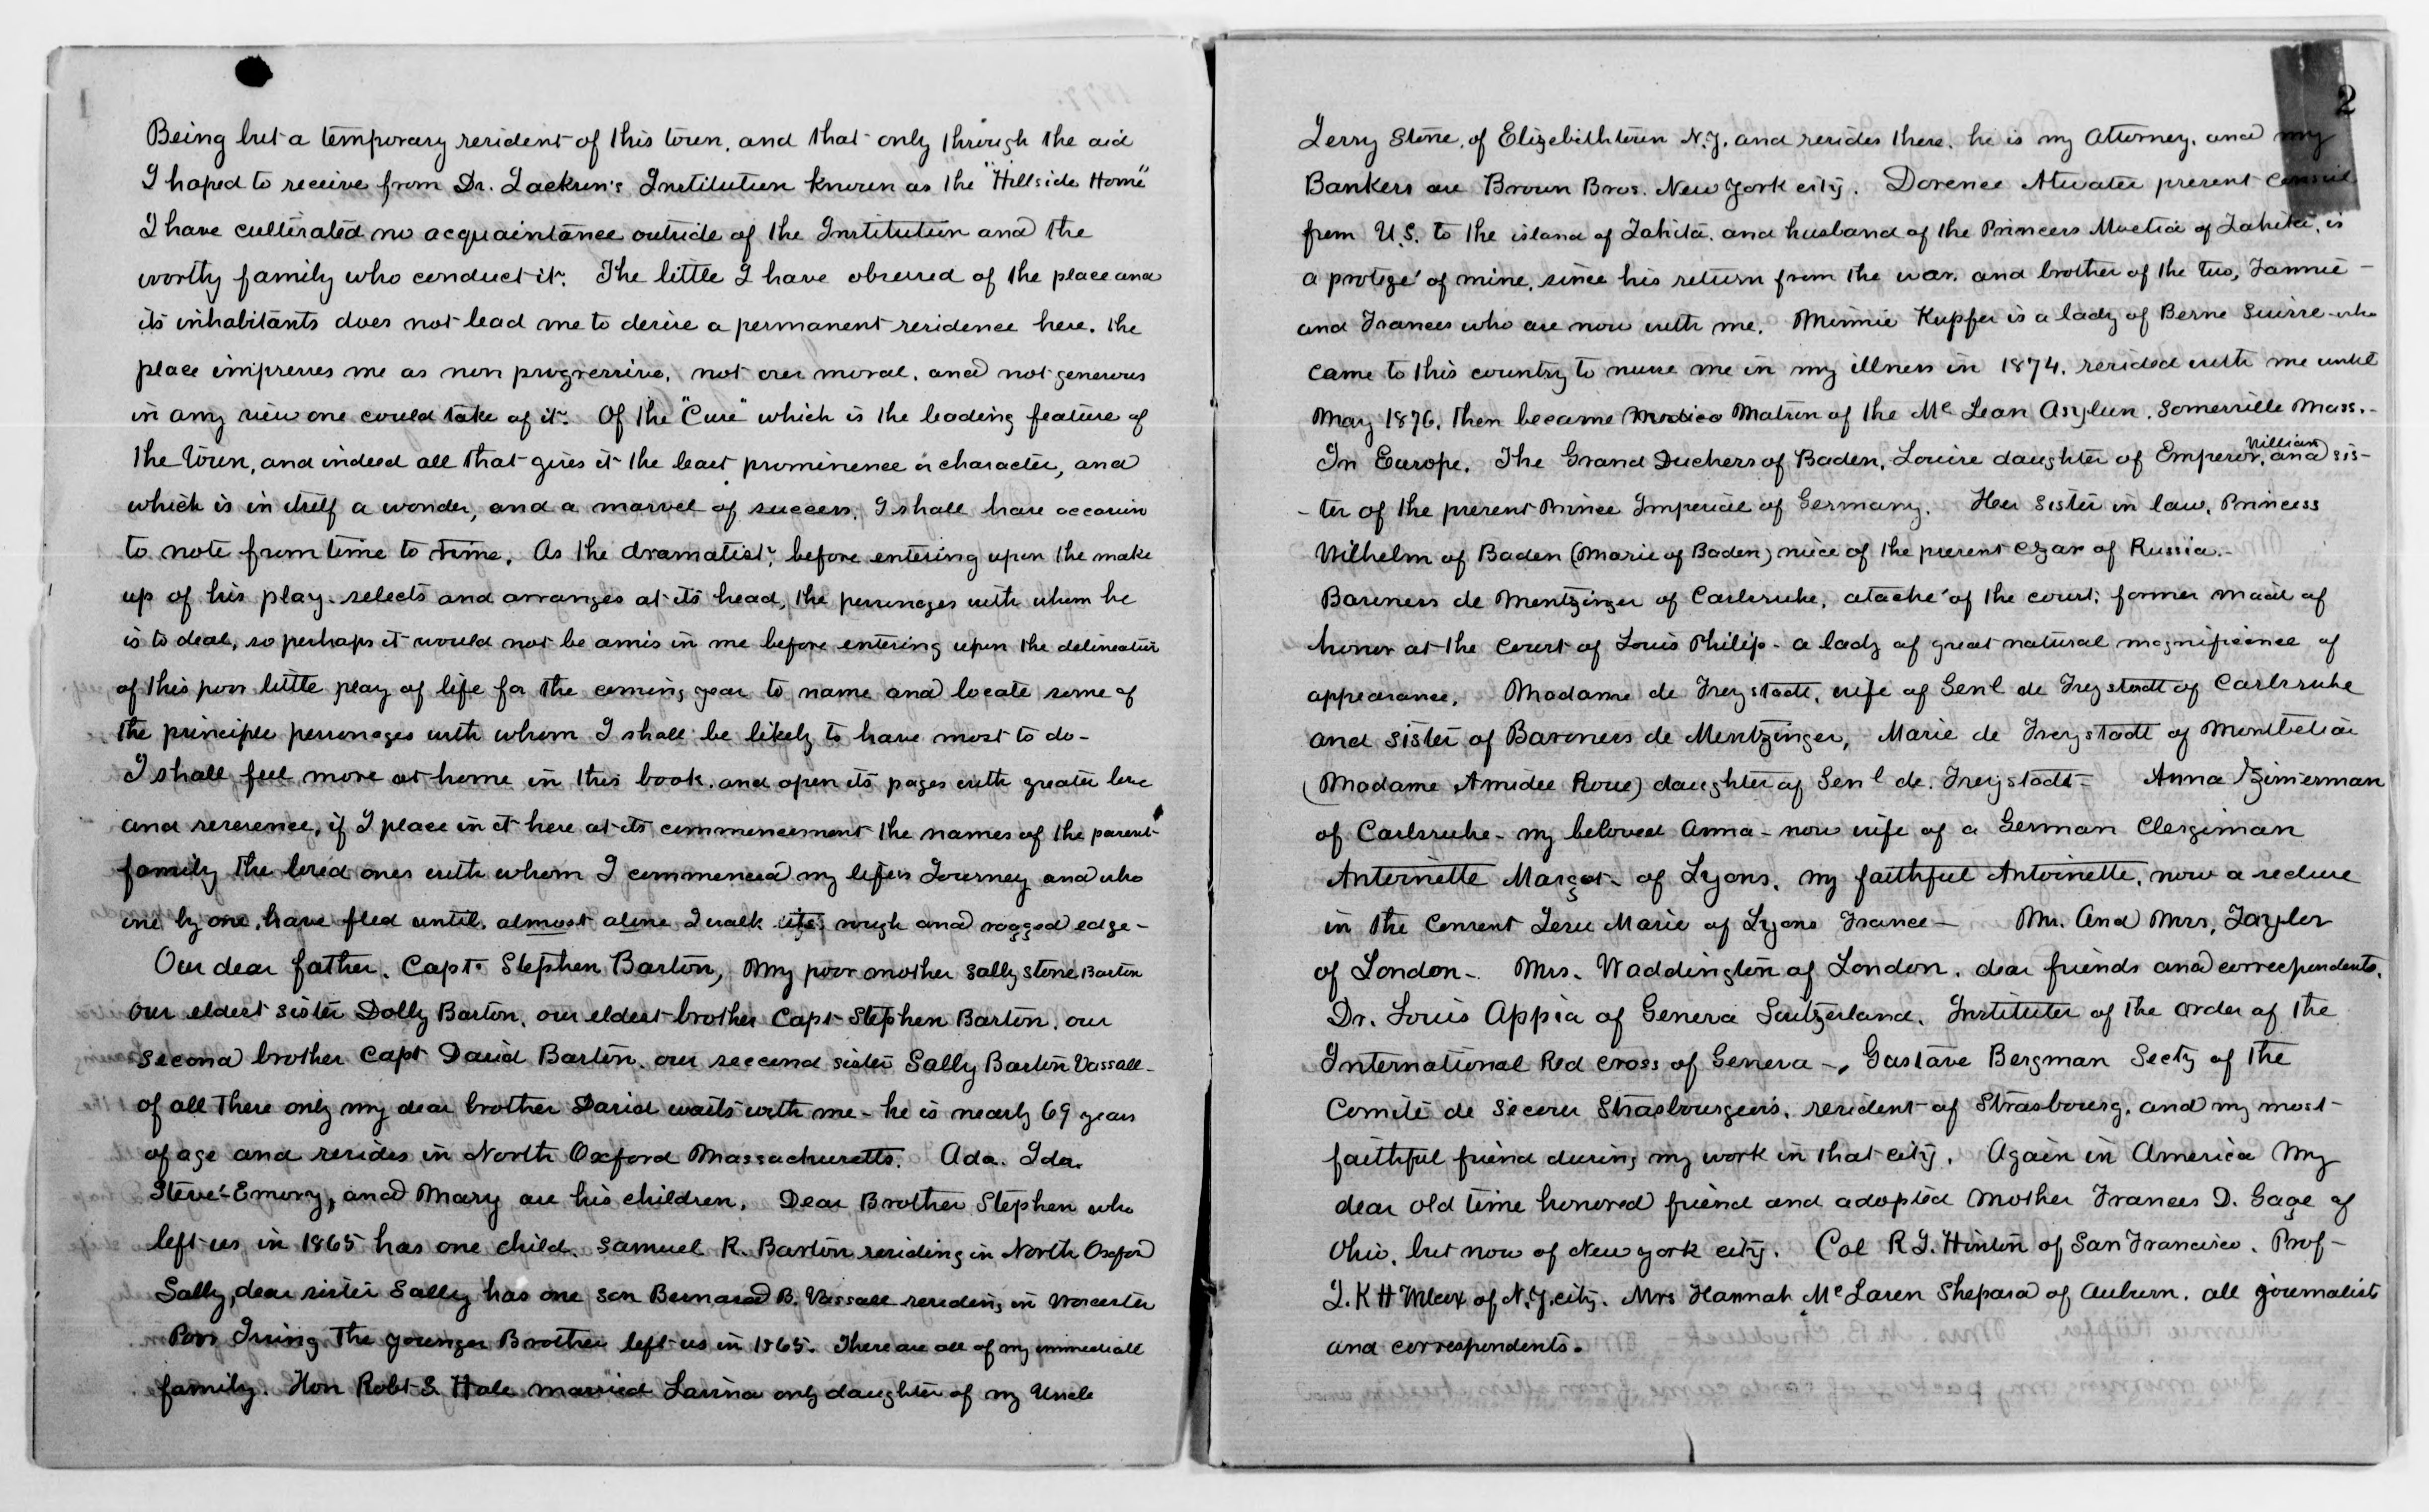 Being but a temporary resident of this town, and that only through the aid
I hoped to receive from Dr. Jackson's Institution known as the "Hillside Home"
I have cultivated no acquaintance outside of the Institution and the
worthy family who conduct it. The little I have observed of the place and
its inhabitants does not lead me to desire a permanent residence here. The
place impresses me as non progressive, not over moral, and not generous
in any view one could take of it. Of the "Cure" which is the leading feature of
the town, and indeed all that gives it the least prominence or character, and
which is in itself a wonder, and a marvel of success, I shall have occasion
to note from time to time. As the dramatist, before entering upon the make
up of his play selects and arranges at its head, the personages with whom he
is to deal, so perhaps it would not be amis in me before entering upon the delineation
of this poor little play of life for the coming year to name and locate some of
the principle personages with whom I shall be likely to have most to do -
I shall feel more at home in this book, and open its pages with greater love
and reverence, if I place in it here at its commencement the names of the parent
family the loved ones with whom I commenced my lifes Journey and who
one by one, have fled until, almost alone I walk its rough and ragged edge -
Our dear father, Capt. Stephen Barton, My poor mother Sally Stone Barton
our eldest sister Dolly Barton, our eldest brother Capt Stephen Barton, our
second brother Capt David Barton, our second sister Sally Barton Vassall -
of all these only my dear brother David waits with me - he is nearly 69 years
of age and resides in North Oxford Massachusetts. Ada. Ida.
Steve - Emory, and Mary are his children. Dear Brother Stephen who
left us in 1865 has one child. Samuel R. Barton residing in North Oxford
Sally, dear sister Sally has one son Bernard B. Vassall residing in Worcester
Poor Irving the younger Brother left us in 1865. These are all of my immediate
family. Hon Robt S. Hale married Lavina only daughter of my Uncle
2
Jerry Stone, of Elizebithtown N.Y. and resides there. he is my Attorney. and my
Bankers are Brown Bros. New York city. Dorence Atwater present consul
from U.S. to the island of Tahita. and husband of the Princess Moetia of Tahita, is
a protegé of mine, since his return from the war, and brother of the two, Fannie -
and Frances who are now with me. Minnie Kupfer is a lady of Berne Suisse who
came to this country to nurse me in my illness in 1874. resided with me until
May 1876. then became Matron of the Mc Lean Asylum. Somerville Mass. -
In Europe. The Grand Duchess of Baden, Louise daughter of Emperor William, and sis-
- ter of the present Prince Imperial of Germany. Her sister in law, Princess
Wilhelm of Baden (Marie of Baden) niece of the present czar of Russia. -
Baroness de Mentzinger of Carlsruhe, ataché of the court; former maid of
honor at the Court of Louis Philip - a lady of great natural magnificence of
appearance. Madame de Freystadt, wife of Genl de Freystadt of Carlsruhe
and sister of Baroness de Mentzinger, Marie de Freystadt of Montbeliar
(Madame Amidee Roue) daughter of Genl de. Freystadt - Anna Zimerman
of Carlsruhe - my beloved Anna - now wife of a German Clergiman
Antoinette Margot - of Lyons, my faithful Antoinette, now a recluse
in the Convent Jesu Marie of Lyons France - Mr. And Mrs, Taylor
of London - Mrs. Waddington of London. dear friends and correspondents.
Dr. Louis Appia of Geneva Switzerland. Instituter of the order of the
International Red cross of Geneva -, Gustave Bergman Secty of the
Comité de Secour Strasbourgeois, resident of Strasbourg, and my most
faithful friend during my work in that city. Again in America My
dear old time honored friend and adopted Mother Frances D. Gage of
Ohio, but now of New York city. Col R J. Hinton of San Francisco. Prof -
J. K H Wilcox of N.Y. city. Mrs Hannah Mc Laren Shepard of Auburn. all journalists
and correspondents.